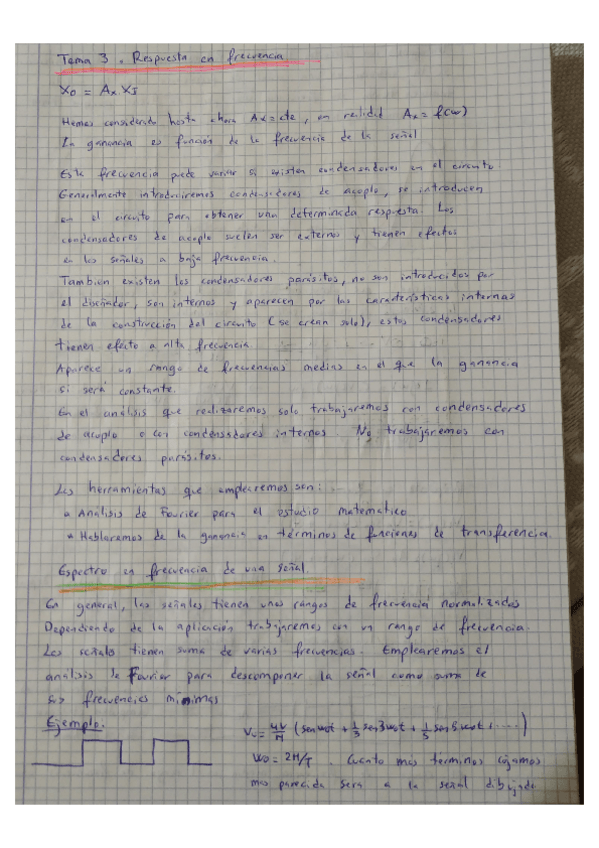 Tema 3. Respuesta en frecuencia
Xo = Ax Xs
Hemos considerado hasta ahora Ax = cte, en realidad Ax = f(w)
La ganancia es función de la frecuencia de la señal
Esta frecuencia puede variar si existen condensadores en el circuito
Generalmente introduciremos condensadores de acoplo, se introducen
en el circuito para obtener una determinada respuesta. Los
condensadores de acoplo suelen ser externos y tienen efectos
en las señales a baja frecuencia.
También existen los condensadores parásitos, no son introducidos por
el diseñador, son internos y aparecen por las características internas
de la construcción del circuito (se crean solo), estos condensadores
tienen efecto a alta frecuencia.
Aparece un rango de frecuencias medias en el que la ganancia
si será constante.
En el análisis que realizaremos solo trabajaremos con condensadores
de acoplo o con condensadores internos. No trabajaremos con
condensadores parásitos.
Las herramientas que emplearemos son:
• Análisis de Fourier para el estudio matemático
• Hablaremos de la ganancia en términos de funciones de transferencia.
Espectro en frecuencia de una señal.
En general, las señales tienen unos rangos de frecuencia normalizados
Dependiendo de la aplicación trabajaremos con un rango de frecuencia.
Las señales tienen suma de varias frecuencias. Emplearemos el
análisis de Fourier para descomponer la señal como suma de
sus frecuencias mínimas
Ejemplo.
Vu = 4V/π (sen wot + 1/3 sen 3wot + 1/5 sen 5wot + ....)
wo = 2π/T. Cuanto mas términos cojamos
mas parecida sera a la señal dibujada